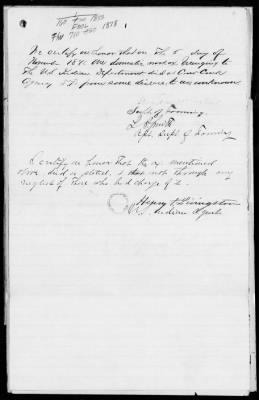 1878
We certify on honor that on the 5 day of
1878 One domestic work ox belonging to
the U.S. Indian Department died at Crow Creek
Agency D.T. from some disease to us unknown
Supt of Farming
Asst Supt of Farming
I certify on honor that the ox mentioned
above died as stated, & that not through any
neglect of those who had charge of it.
Henry F. Livingston
U.S. Indian Agent